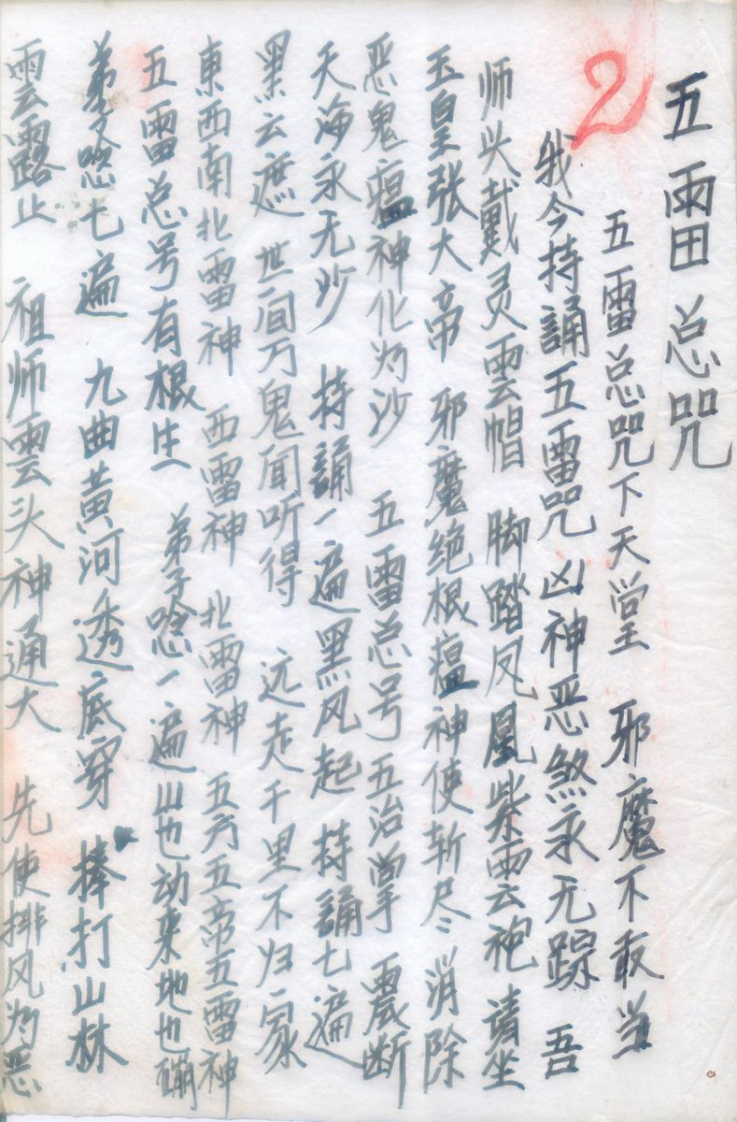 五雷总咒
2
五雷总咒下天堂 邪魔不敢当
我今持誦五雷咒 凶神恶煞永无踪 吾
师头戴灵雲帽 脚踏凤凰紫雲袍 请坐
玉皇张大帝 邪魔绝根瘟神使斩尽消除
恶鬼瘟神化为沙 五雷总号五治掌 震断
天海永无沙 持誦一遍黑风起 持誦七遍
黑云遮 世间万鬼闻听得 远走千里不归家
東西南北雷神 西雷神 北雷神 五方五帝五雷神
五雷总号有根生 弟子唸一遍山也动来地也蹦
弟子唸七遍 九曲黄河透底穿 捧打山林
雲露止 祖师雲头神通大 先使排风为恶